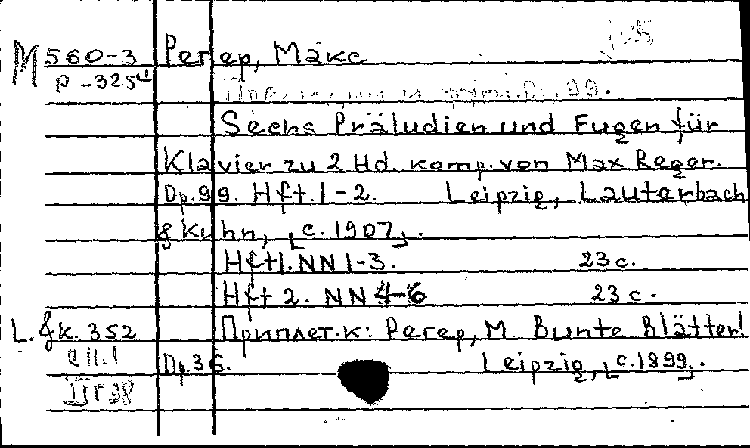 М 560-3 Регер, Макс
р-325
Sechs Präludien und Fugen für
Klavier zu 2 Hd. komp. von Max Reger.
Op. 99. Hft. 1-2. Leipzig, Lauterbach
& Kuhn, [c. 1907].
Hft 1. NN 1-3. 23 c.
Hft 2. NN 4-6 23 c.
L. & K. 352 Приплет. к: Регер, М. Bunte Blätter!
Op. 36. Leipzig, [c. 1899].